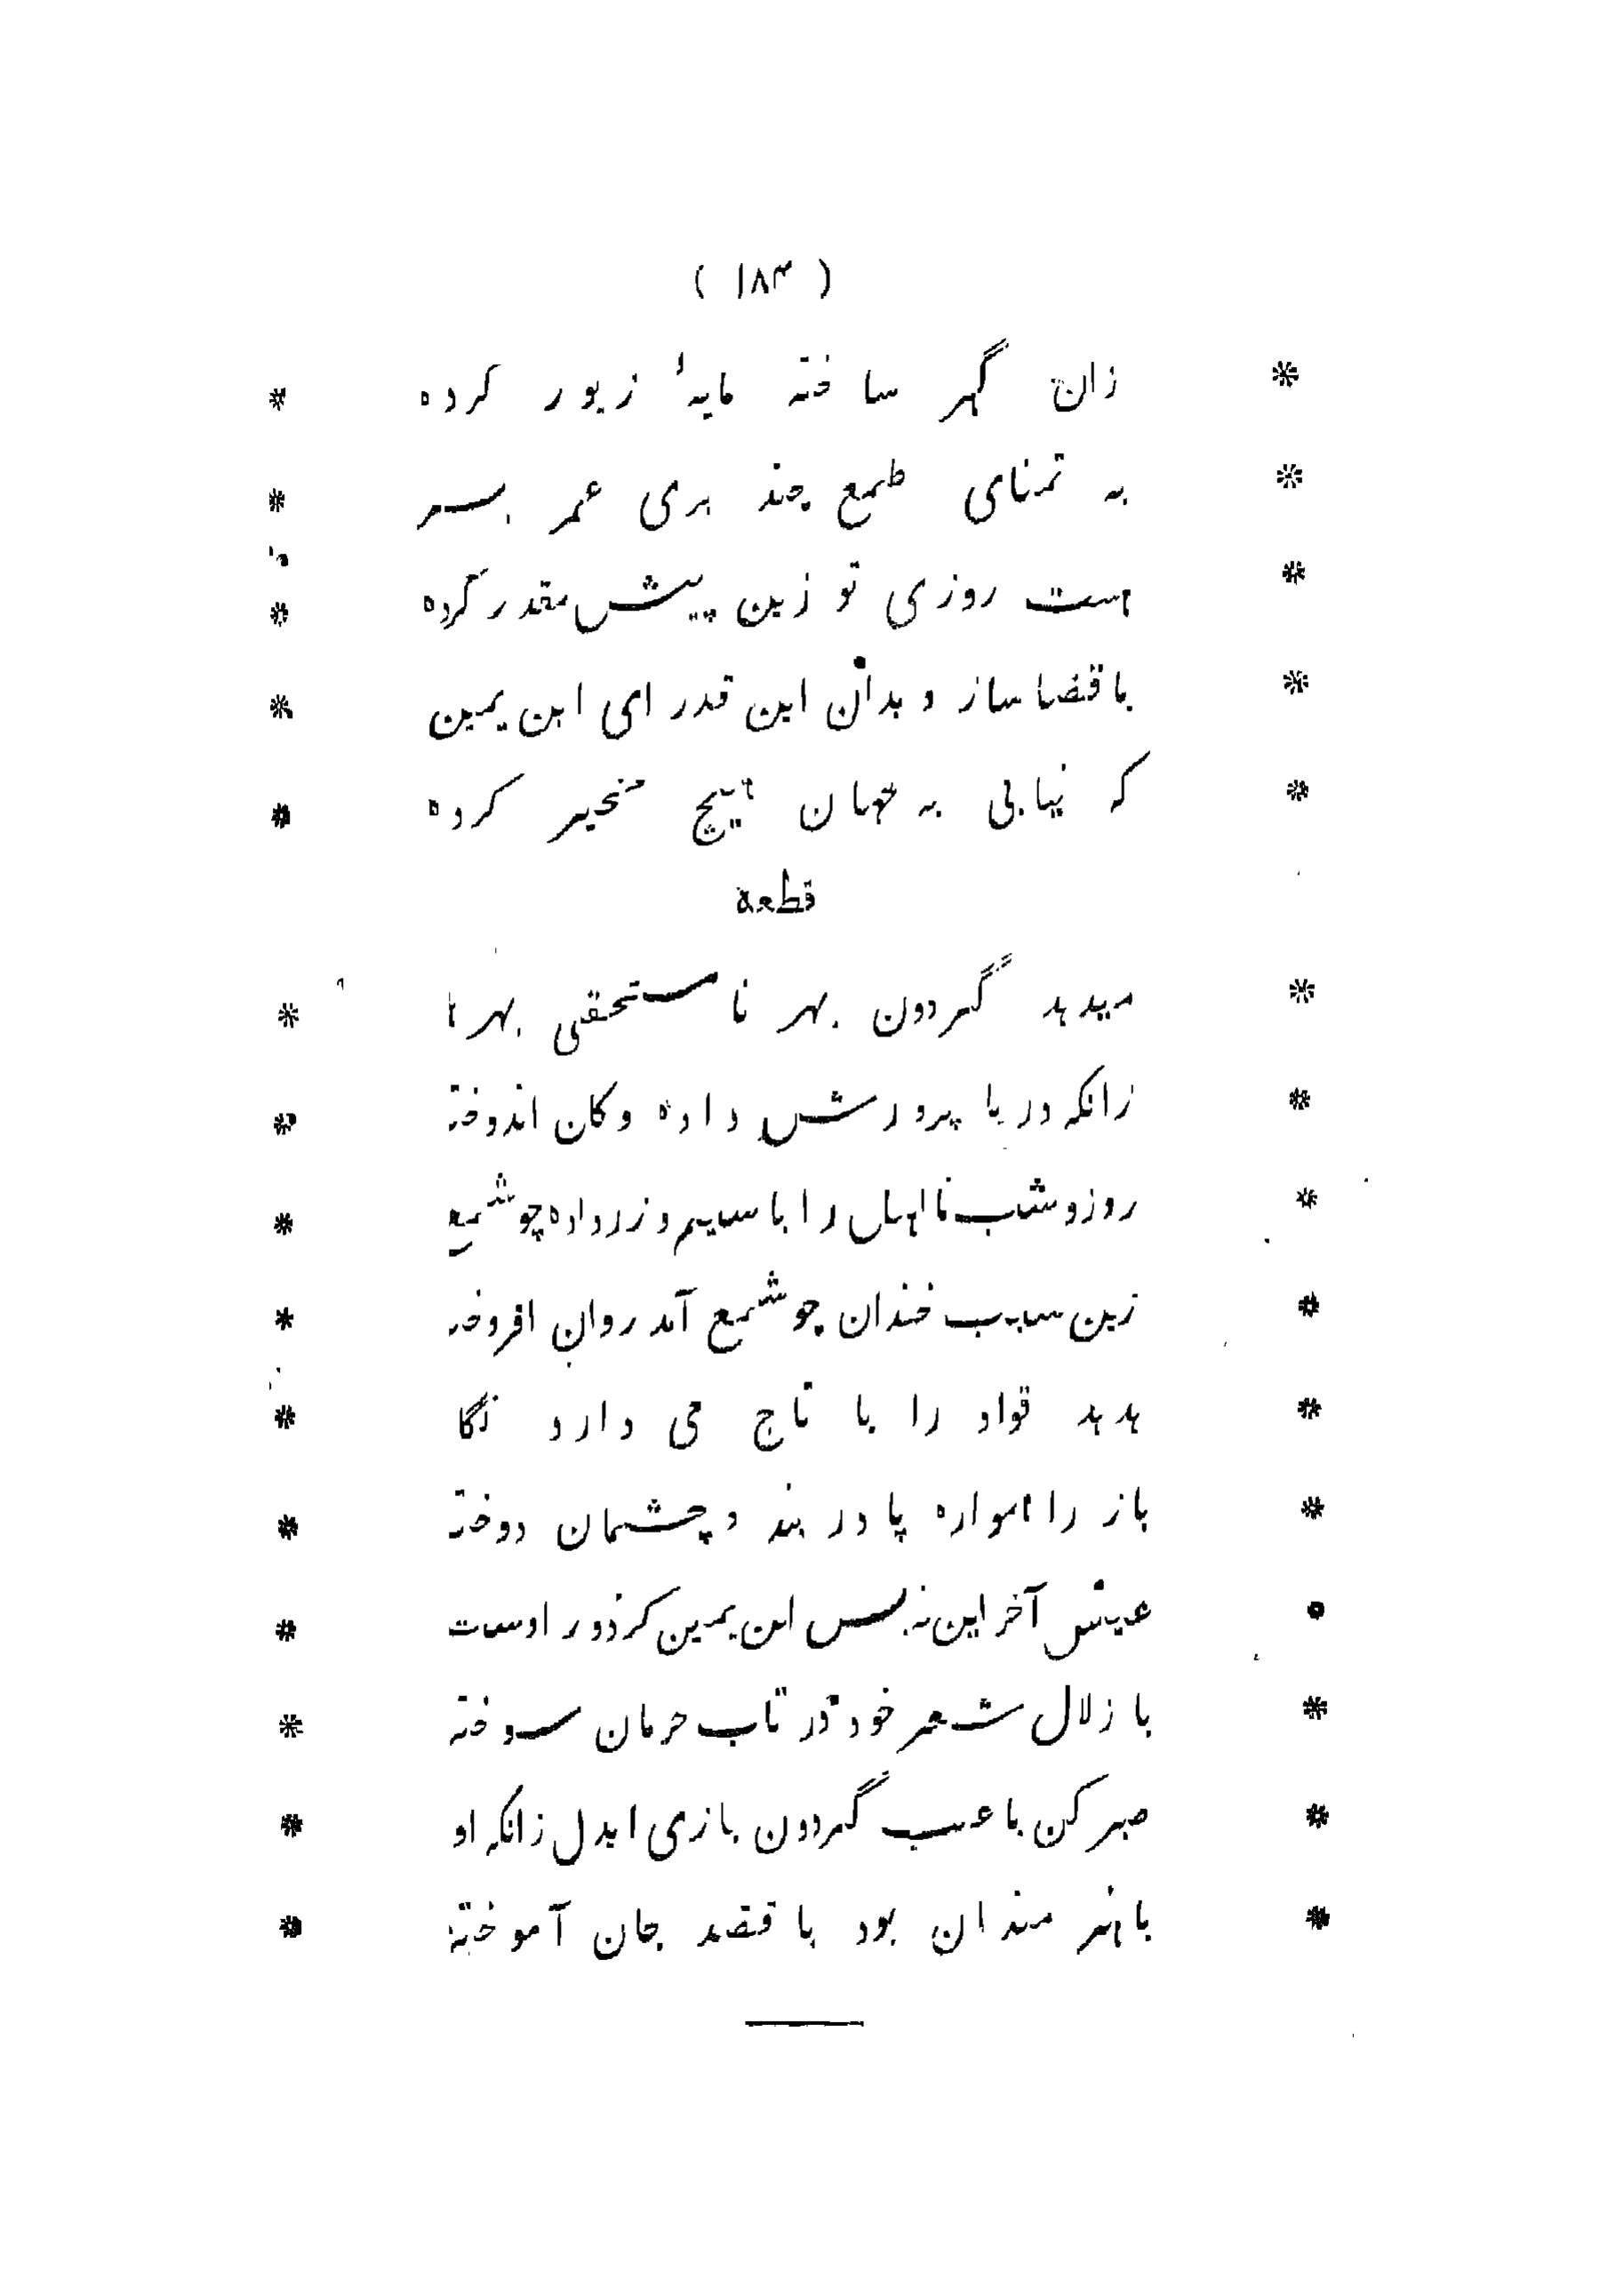 ( ۱۸۳ )
* زان گهر ساخته مایهٔ زیور کرده *
* به تمنای طمع چند بری عمر بسر *
* هست روزی تو زین پیش مقدر کرده *
* با قضا ساز و بدان این قدر ای ابن یمین *
* که نیابی به جهان هیچ مخیر کرده *
قطعة
* میدهد گردون بهر نا مستحقی بهرها *
* زانکه دریا پرورش داده و کان اندوخته *
* روز و شب نااهل را با سیم و زر داده چو شمع *
* زین سبب خندان چو شمع آمد روان افروخته *
* هدهد قواد را با تاج می دارد نگا *
* باز را همواره پا در بند و چشمان دوخته *
* عیش آخر این نه بس ابن یمین کز دور اوست *
* با زلال شعر خود در تاب حرمان سوخته *
* صبر کن با عیب گردون بازی ایدل زانکه او *
* با هنر مندان بود با قصد جان آموخته *